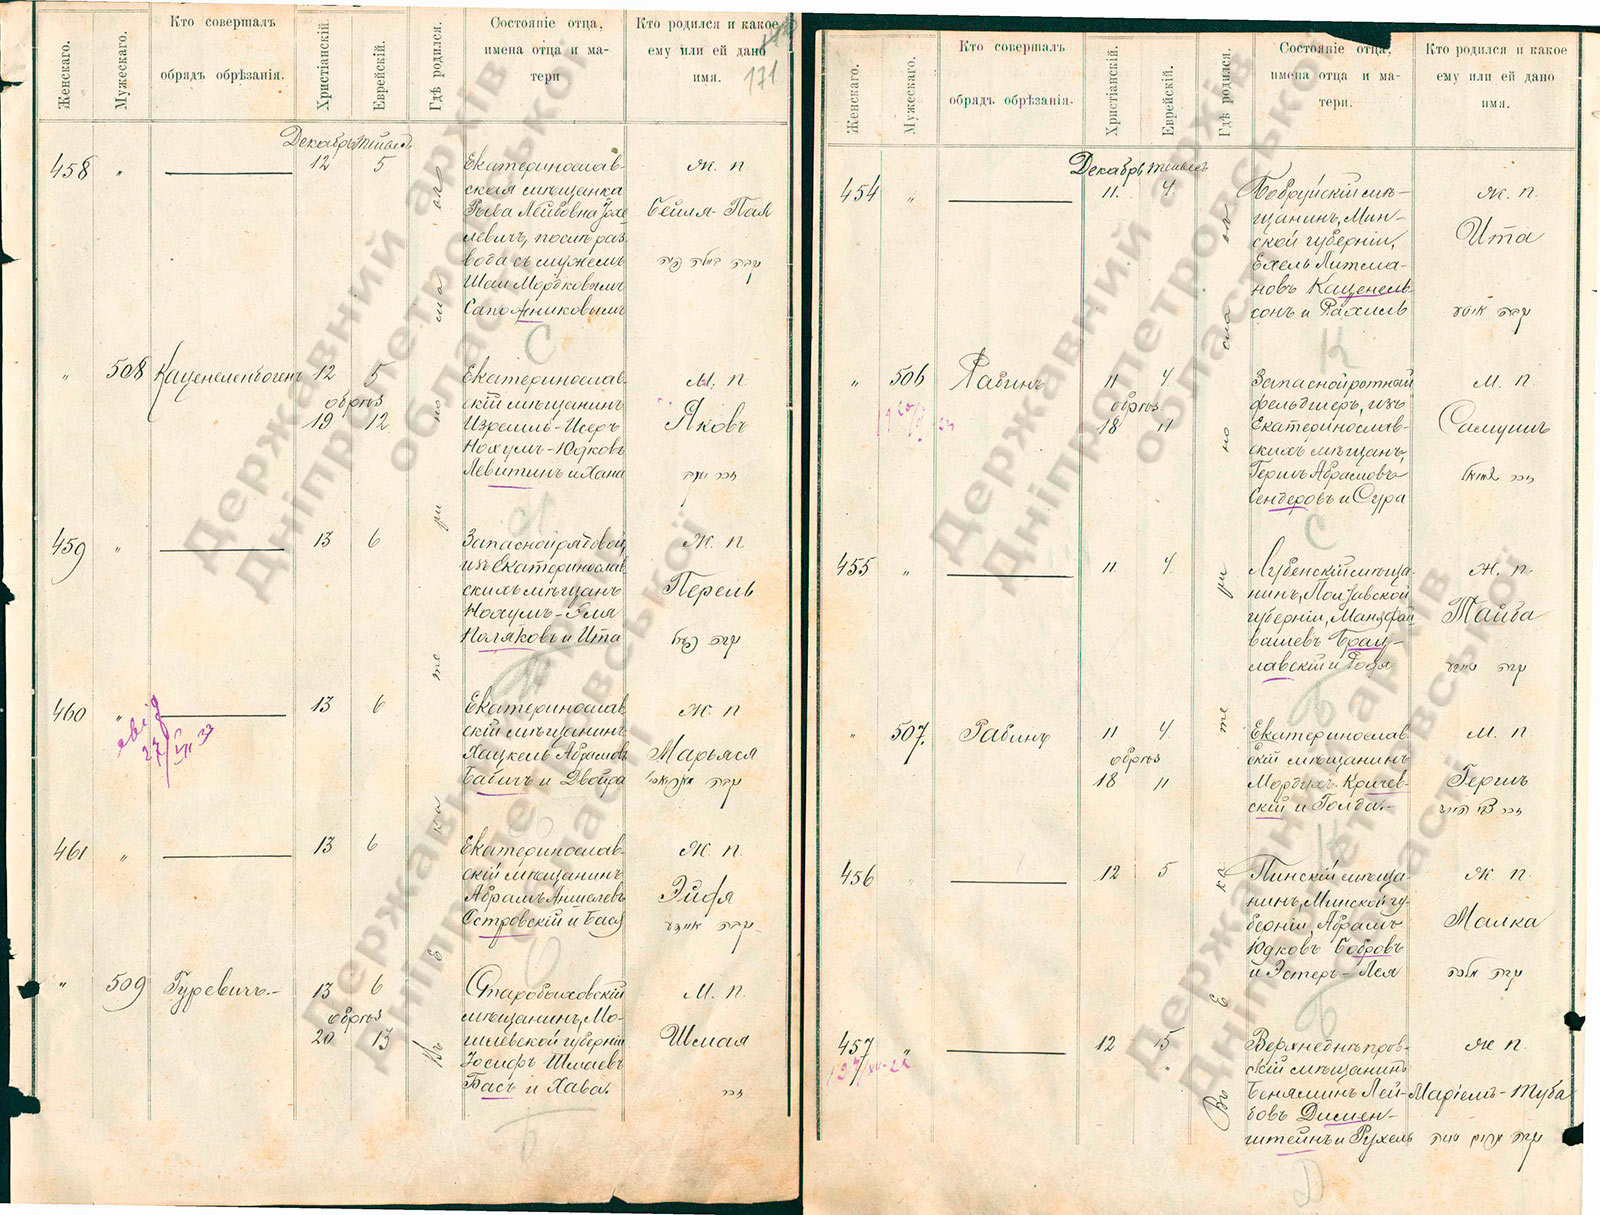 Женскаго.
Мужескаго.
Кто совершалъ
обрядъ обрѣзанія.
Христіанскій.
Еврейскій.
Гдѣ родился.
Состояніе отца,
имена отца и ма-
тери
Кто родился и какое
ему или ей дано
имя.
171
Декабрь Тейвесъ
458 " 12 5
Екатеринослав-
ская мѣщанка
Рыва Лейбовна
левичъ, послѣ раз
вода съ мужемъ
Шаи Мордковымъ
Сапожниковымъ
Ж. п.
Бейля-Пая
נקבה ביילה פיה
С
" 508 Каценеленбогенъ 12 5
обрѣз
19 12
Екатеринослав-
скій мѣщанинъ
Израиль-Исеръ
Нохумъ-Юдковъ
Левитинъ и Хана
М. п.
Яковъ
זכר יעקב
Л
459 " 13 6
Запасной рядовой,
изъ Екатеринослав-
скихъ мѣщанъ
Нохумъ-Эля
Поляковъ и Ита
Ж. п
Перель
נקבה פערל
460 " 13 6
27
Екатеринослав-
скій мѣщанинъ
Хацкель Абрамовъ
Бабичъ и Двойра
Ж. п
Марьяся
נקבה
461 " 13 6
Екатеринослав-
скій мѣщанинъ
Абрамъ Аншелевъ
Островскій и Бася
Ж. п.
Эйдя
נקבה
" 509 Гуревичъ.- 13 6
обрѣз
20 13
Старобыховскій
мѣщанинъ, Мо-
гилевской губерніи
Іосифъ Шмаевъ
Басъ и Хава.
М. п.
Шмая
זכר
Б
Въ Екатеринославѣ
Женскаго.
Мужескаго.
Кто совершалъ
обрядъ обрѣзанія.
Христіанскій.
Еврейскій.
Гдѣ родился.
Состояніе отца,
имена отца и ма-
тери.
Кто родился и какое
ему или ей дано
имя.
Декабрь Тейвесъ
454 " 11. 4.
Бобруйскій мѣ-
щанинъ, Мин-
ской губерніи,
Ехель Литма-
новъ Каценель-
сонъ и Рахиль
Ж. п.
Ита
נקבה איטע
К
" 506 Рабинъ 11 4
обрѣз
18 11
Запасной ротный
фельдшеръ, изъ
Екатеринослав-
скихъ мѣщанъ,
Гершъ Абрамовъ
Сендеровъ и Сура
М. п
Самуилъ
זכר שמואל
С
455 " 11 4
Лубенскій мѣща-
нинъ, Полтавской
губерніи,
Ж. п.
Тайба
נקבה טייבע
" 507. Рабинъ 11 4
обрѣз
18 11
Екатеринослав-
скій мѣщанинъ
Мордухъ Кричев-
скій и Голда.-
М. п
Гершъ
זכר צבי הירש
К
456 " 12 5
Пинскій мѣща
нинъ, Минской гу-
берніи, Абрамъ
Юдковъ Бобровъ
и Эстеръ-Лея
Ж п.
Малка
נקבה מלכה
Б
457 " 12 5
Верхнеднѣпров-
скій мѣщанинъ
Беняминъ Лей-
бовъ Димен-
штейнъ и Рухель
Ж п.
Маріемъ-Туба
נקבה מרים טובה
Д
Въ Екатеринославѣ
Державний архів
Дніпропетровської
області